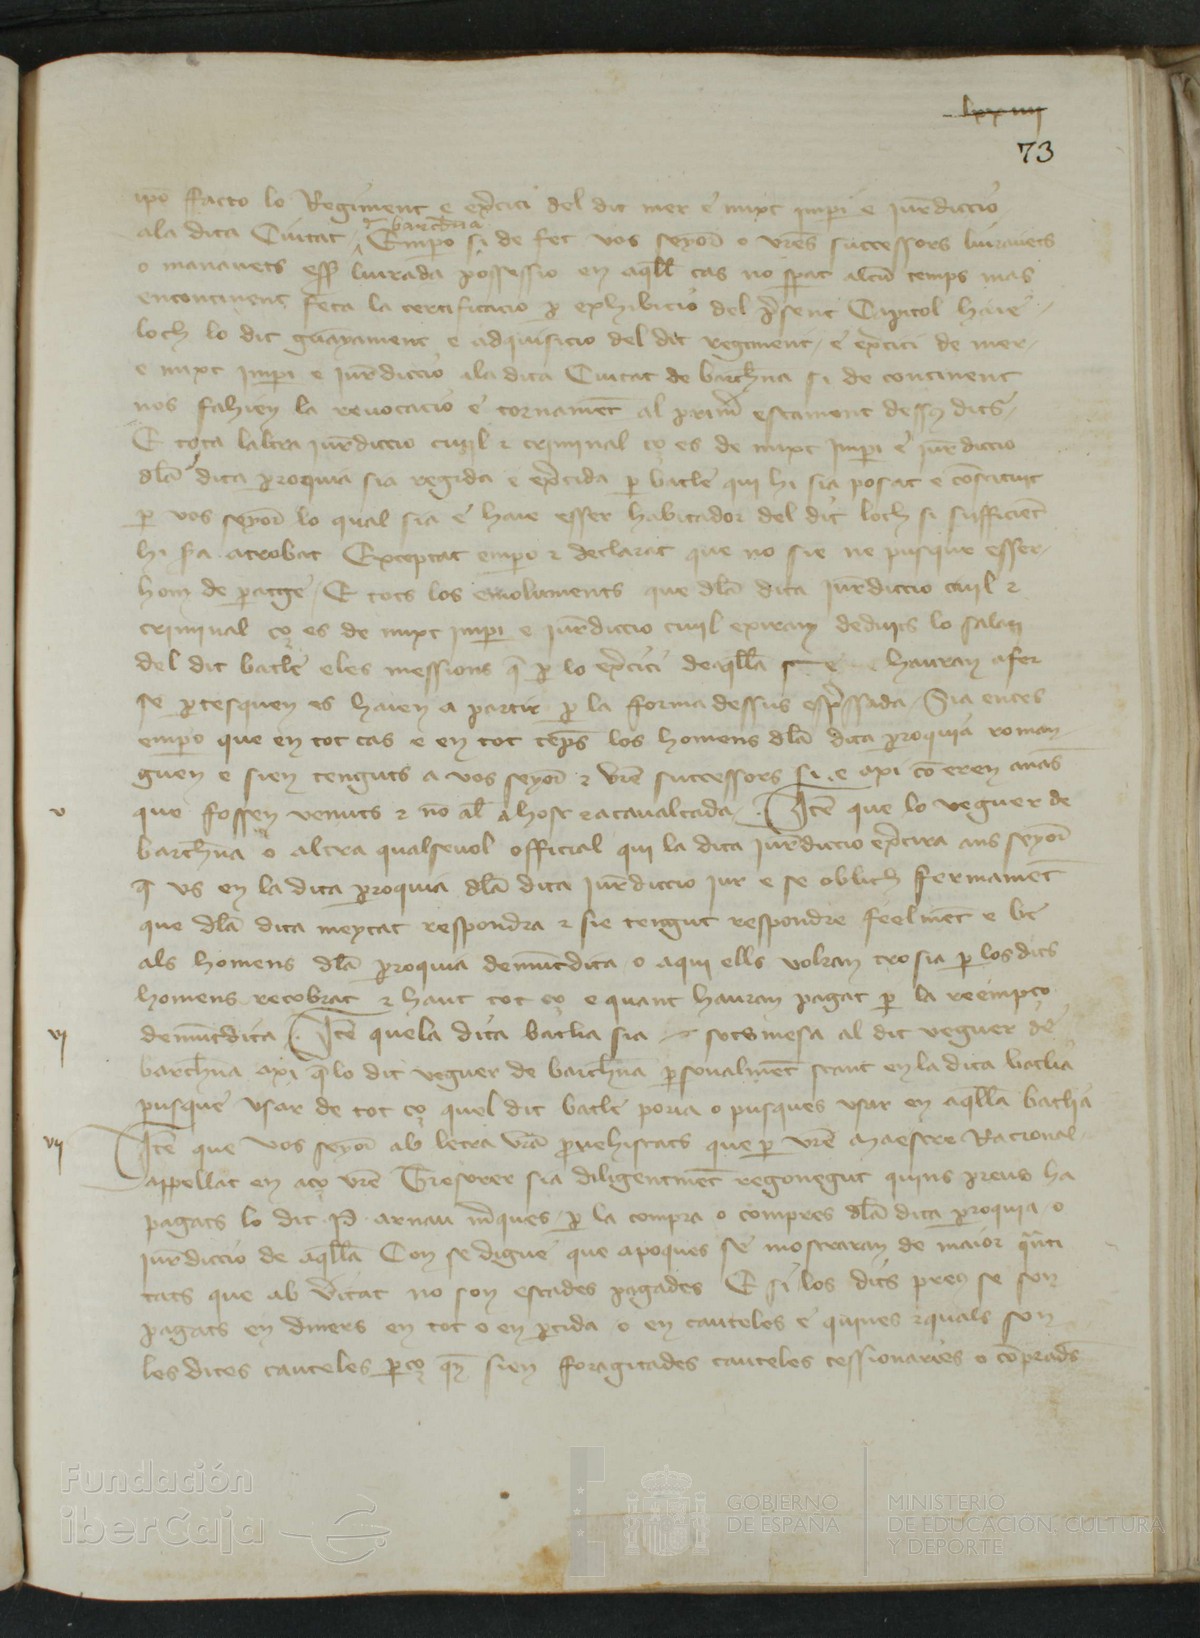 lxxiiij
73
ipo facto lo Regiment e exercici del dit mer e mixt imperi e Jurediccio
a la dita Ciutat de barchna Empero si de fet vos senyor o vres successors liuravets
o manavets esser liurada possessio en aqll cas no sperat alcun temps mas
encontinent feta la certificacio per exhibicio del present Capitol haie
loch lo dit guanyament e adquisicio del dit regiment e exercici de mer
e mixt imperi e Jurdiccio ala dita Ciutat de barchna si de continent
nos fahien la revocacio e tornament al primer estament dessus dits
E tota laltra Jurdiccio civil e criminal ço es de mixt imperi e jurdiccio
dla dita proquia sia regida e exercida per batle qui hi sia posat e constituit
per vos senyor lo qual sia e haie esser habitador del dit loch si sufficient
hi sia atrobat Exceptat empero e declarat que no sie ne pusque esser
hom de paratge E tots los emoluments que dla dita Jurdiccio civil e
criminal ço es de mixt imperi e jurdiccio civil exiran deduits lo salari
del dit batle e les messions q per lo exercici de aqlla hauran a fer
se pertesquen es haien a partir per la forma dessus expressada Sia entes
empero que en tot cas e en tot temps los homens dla dita proquia roman
guen e sien tenguts a vos senyor e vres successors si e axi com eren abans
v que fossen venuts e no al a host e a cavalcada Item que lo veguer de
barchna o altra qualsevol official qui la dita Jurdiccio exercira ans senyor
q us en la dita proquia dla dita Jurdiccio jur e se oblich fermament
que dla dita meytat respondra e sie tengut respondre feelment e be
als homens dla proquia demuntdita o a qui ells volran tro sia per los dits
homens recobrat e haut tot ço e quant hauran pagat per la reempço
vj demuntdita Item que la dita batlia sia sotsmesa al dit veguer de
barchna axi q lo dit veguer de barchna personalment stant en la dita batlia
pusque usar de tot ço quel dit batle poria o pusques usar en aqlla batlia
vij Item que vos senyor ab letra vra provehiscats que per vre Maestre Racional
appellat en aço vre Tresorer sia diligentment regonegut quins preus ha
pagats lo dit P. arnau marques per la compra o compres dla dita proquia o
jurdiccio de aqlla Con se digue que apoques se mostraran de maior quanti
tats que ab veritat no son estades pagades E si los dits preus se son
pagats en diners en tot o en partida o en cauteles e quines e quals son
les dites cauteles per ço qn sien foragitades cauteles cessionaries o comprads
Fundación
iberCaja
GOBIERNO
DE ESPAÑA
MINISTERIO
DE EDUCACIÓN, CULTURA
Y DEPORTE